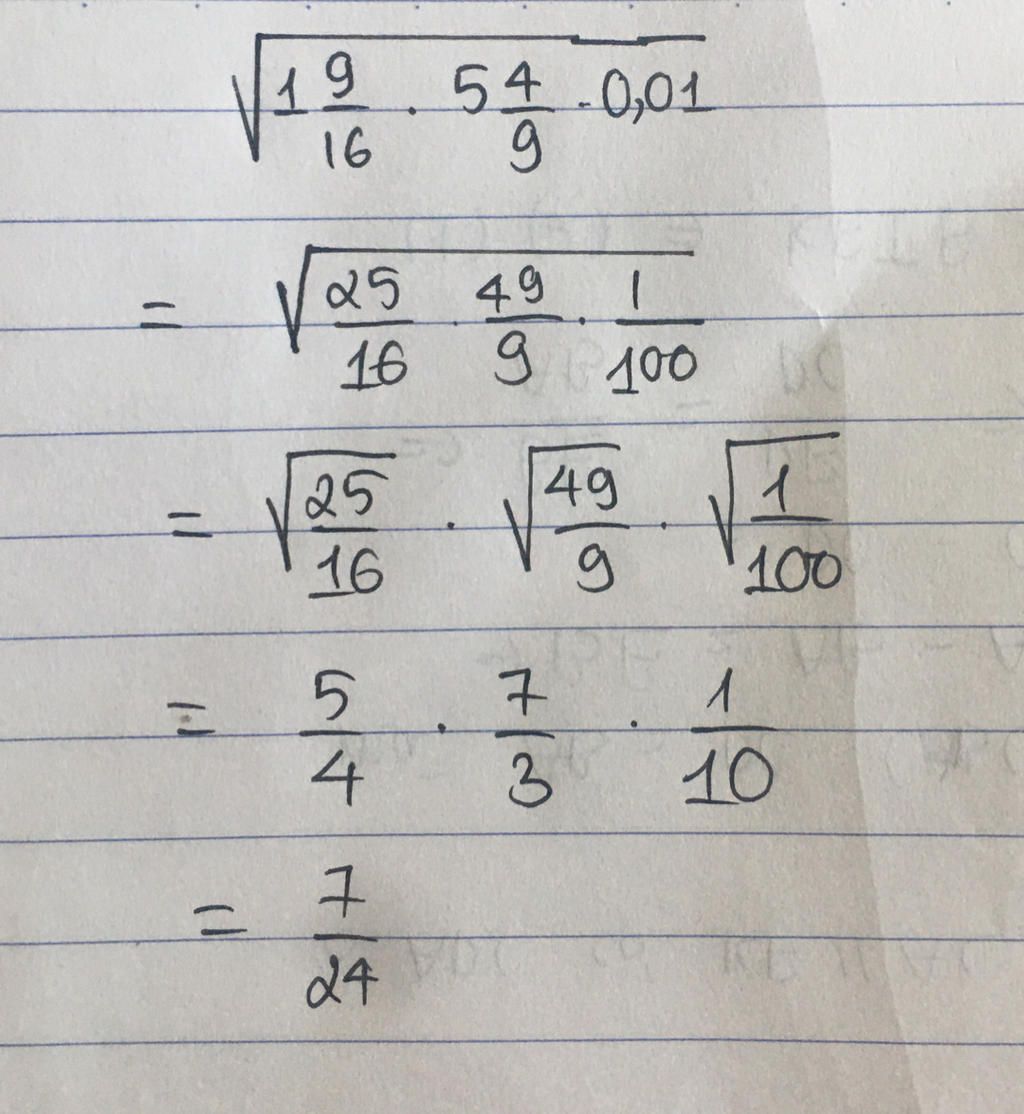 √(1 9/16 · 5 4/9 · 0,01)
= √(25/16 · 49/9 · 1/100)
= √(25/16) · √(49/9) · √(1/100)
= 5/4 · 7/3 · 1/10
= 7/24